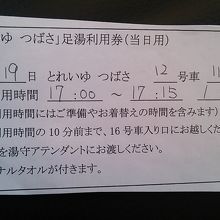 いゆ つばさ」足湯利用券(当日用)
19日 とれいゆ つばさ 12号車 11
用時間 17:00 〜 17:15 1
用時間にはご準備やお着替えの時間を含みます)
用時間の10分前まで、16号車入り口にお越しくだ
を湯守アテンダントにお渡しください。
ナルタオルが付きます。